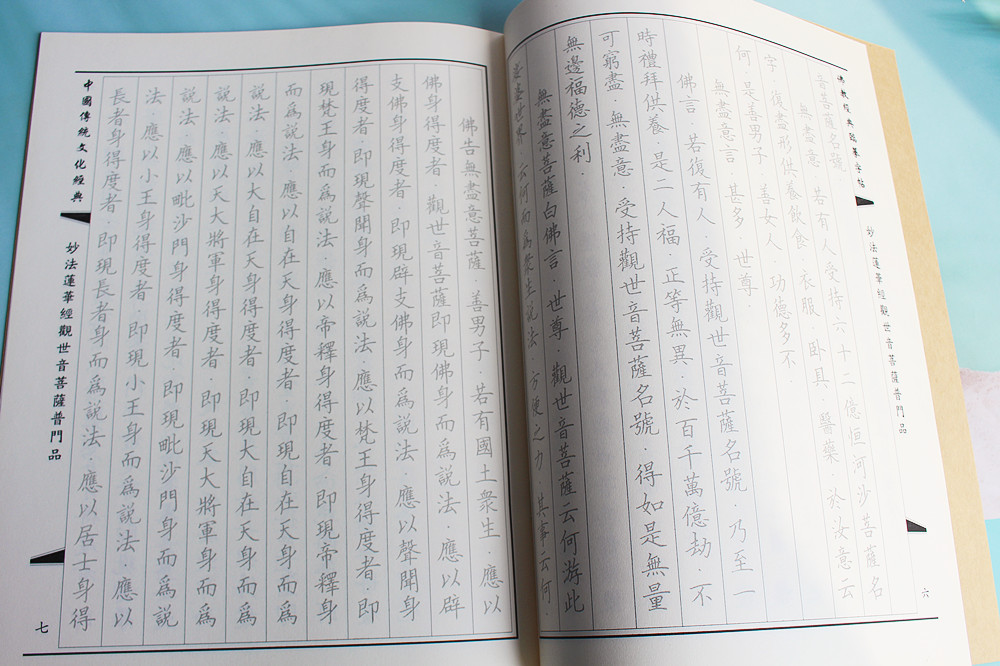 佛教經典
字帖
妙法蓮華經觀世音菩薩普門品
六
音菩薩名號
無盡意·若有人受持六十二億恒河沙菩薩名
字·復盡形供養飲食·衣服·臥具·醫藥·於汝意云
何·是善男子·善女人·功德多不
無盡意言·甚多·世尊
佛言·若復有人·受持觀世音菩薩名號·乃至一
時禮拜供養·是二人福·正等無異·於百千萬億劫·不
可窮盡·無盡意·受持觀世音菩薩名號·得如是無量
無邊福德之利·
無盡意菩薩白佛言·世尊·觀世音菩薩云何游此
娑婆世界·云何而爲衆生說法·方便之力·其事云何·
佛告無盡意菩薩·善男子·若有國土衆生·應以
佛身得度者·觀世音菩薩即現佛身而爲說法·應以辟
支佛身得度者·即現辟支佛身而爲說法·應以聲聞身
得度者·即現聲聞身而爲說法·應以梵王身得度者·即
現梵王身而爲說法·應以帝釋身得度者·即現帝釋身
而爲說法·應以自在天身得度者·即現自在天身而爲
說法·應以大自在天身得度者·即現大自在天身而爲
說法·應以天大將軍身得度者·即現天大將軍身而爲
說法·應以毗沙門身得度者·即現毗沙門身而爲說
法·應以小王身得度者·即現小王身而爲說法·應以
長者身得度者·即現長者身而爲說法·應以居士身得
中國傳統文化經典
妙法蓮華經觀世音菩薩普門品
七